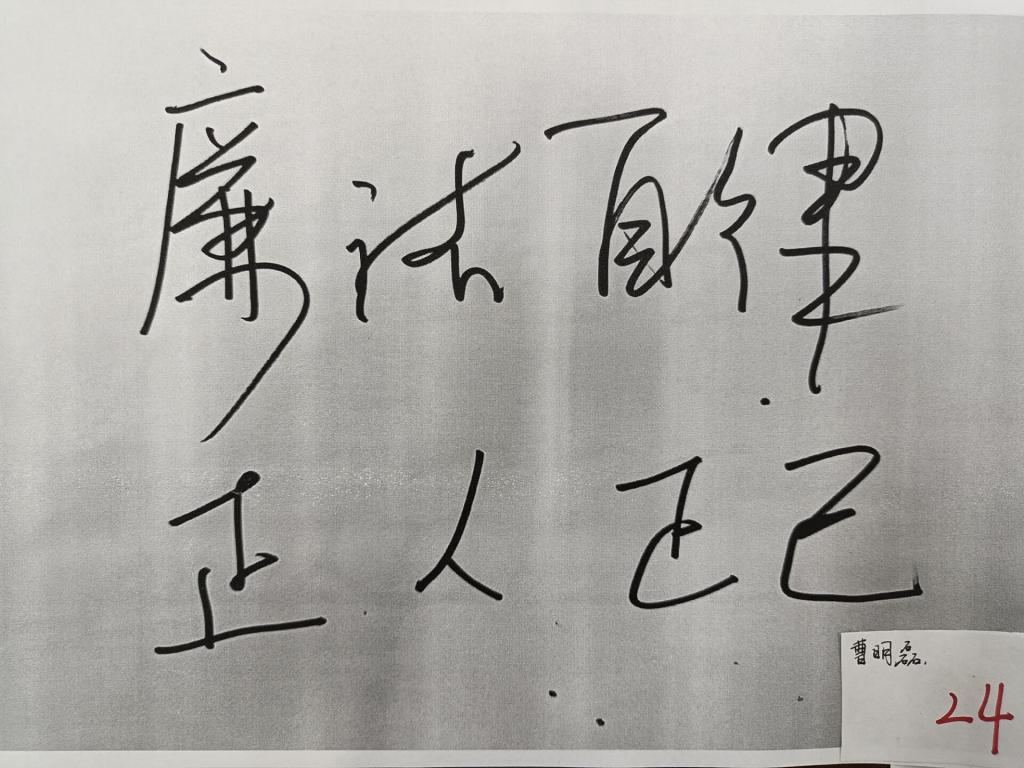 廉洁自律
正人正己
曹明磊.
24